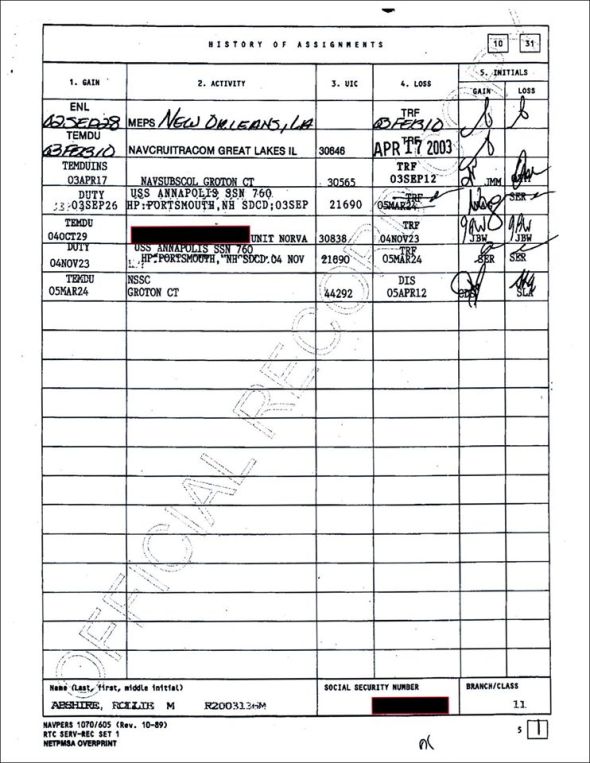 HISTORY OF ASSIGNMENTS
10 31
1. GAIN 2. ACTIVITY 3. UIC 4. LOSS 5. INITIALS
GAIN LOSS
ENL TRF
02SEP28 MEPS NEW ORLEANS, LA 03FEB10
TEMDU TRF
03FEB10 NAVCRUITRACOM GREAT LAKES IL 30646 APR 17 2003
TEMDUINS TRF
03APR17 NAVSUBSCOL GROTON CT 30565 03SEP12 JMM
DUTY USS ANNAPOLIS SSN 760 TRF SER
03SEP26 HP:PORTSMOUTH,NH SDCD:03SEP 21690 05MAR24
TEMDU TRF
04OCT29 UNIT NORVA 30838 04NOV23 JBW JBW
DUTY USS ANNAPOLIS SSN 760 TRF
04NOV23 HP:PORTSMOUTH, NH SDCD:04 NOV 21690 05MAR24 SER SER
TEMDU NSSC DIS
05MAR24 GROTON CT 44292 05APR12 SLA
OFFICIAL RECORD COPY
Name (Last, first, middle initial) SOCIAL SECURITY NUMBER BRANCH/CLASS
ABSHIRE, ROLLIE M 11
NAVPERS 1070/605 (Rev. 10-89)
RTC SERV-REC SET 1
NETPMSA OVERPRINT
5 1